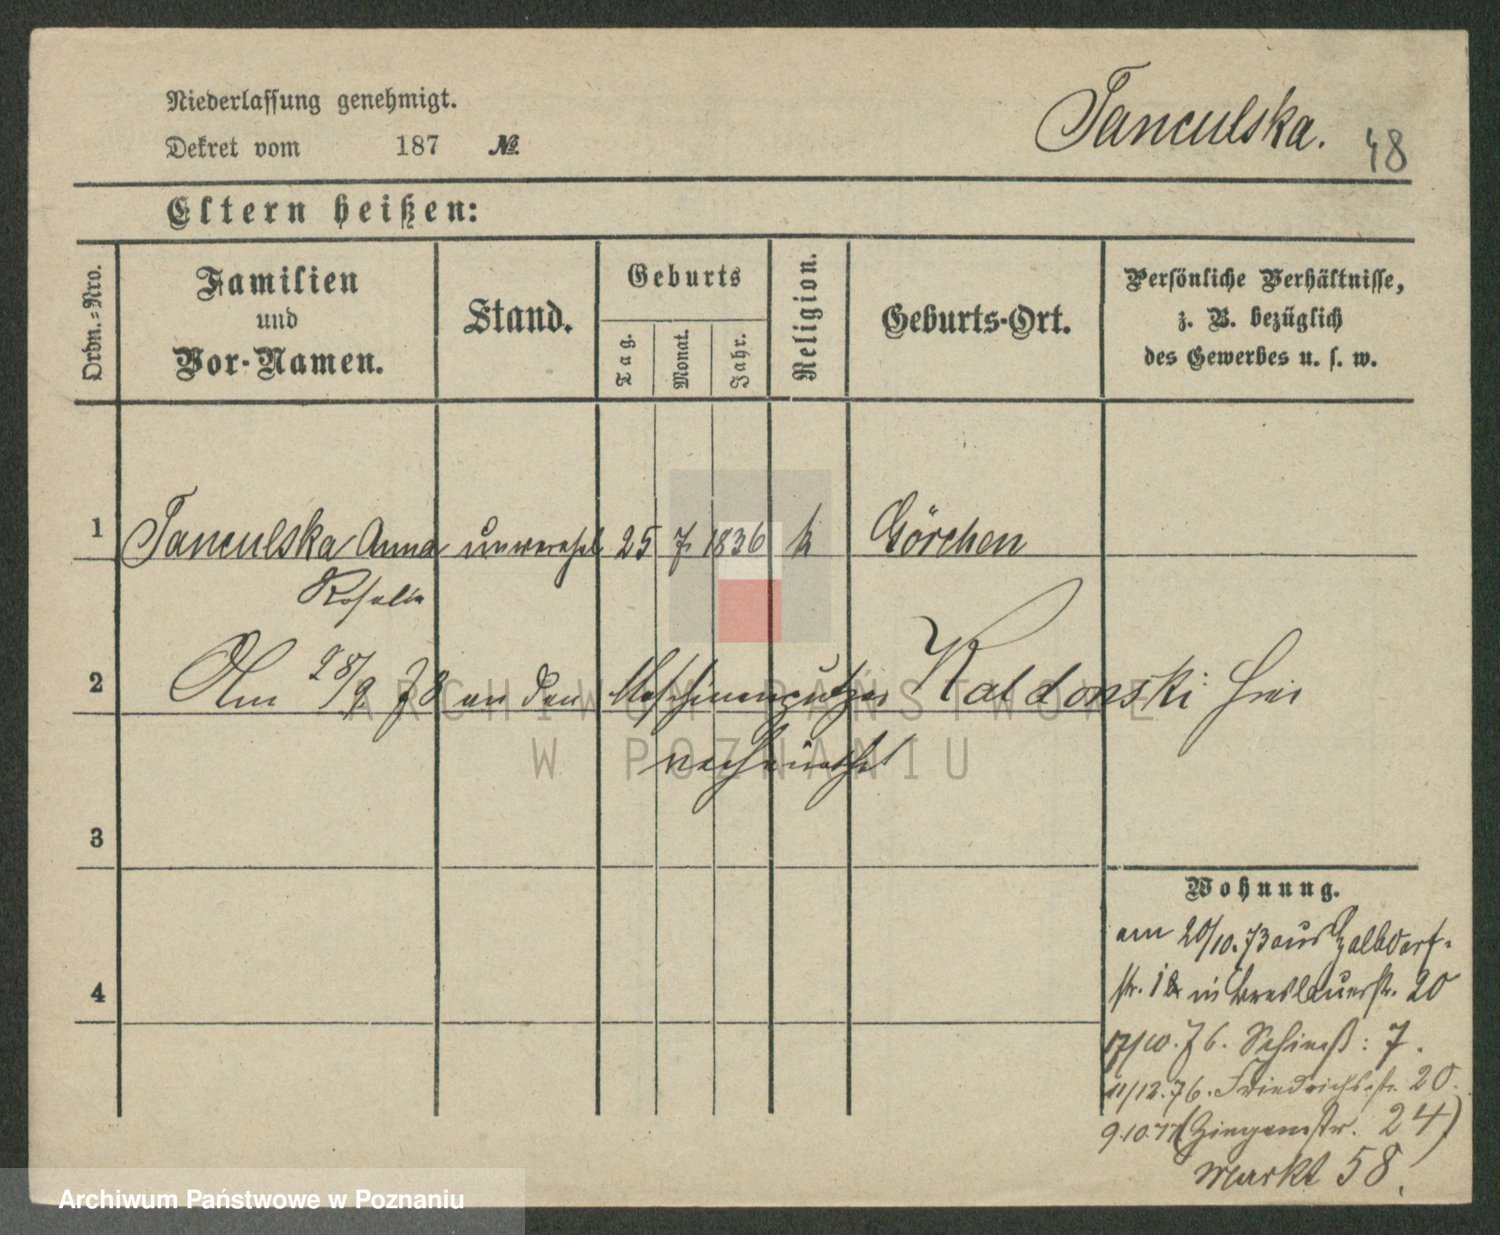 Niederlassung genehmigt.
Dekret vom 187 №
Tanculska.
48
Eltern heißen:
Ordn.-Nro.
Familien
und
Vor-Namen.
Stand.
Geburts
Tag.
Monat.
Jahr.
Religion.
Geburts-Ort.
Persönliche Verhältnisse,
z. B. bezüglich
des Gewerbes u. s. w.
1 Tanculska Anna unvereh 25 7 1836 k Görchen
Rosalie
2 Am 28/9 78 an den Maschinenputzer Kaldonski hier
verheirathet
3
Wohnung.
am 20/10. 73 aus Halbdorf-
str. 18 in Breslauerstr. 20
4
17/10. 76. Schieß: 7.
11/12. 76. Friedrichsstr. 20.
9.10.77 (Ziegenstr. 24)
Markt 58.
ARCHIWUM PAŃSTWOWE
W POZNANIU
Archiwum Państwowe w Poznaniu